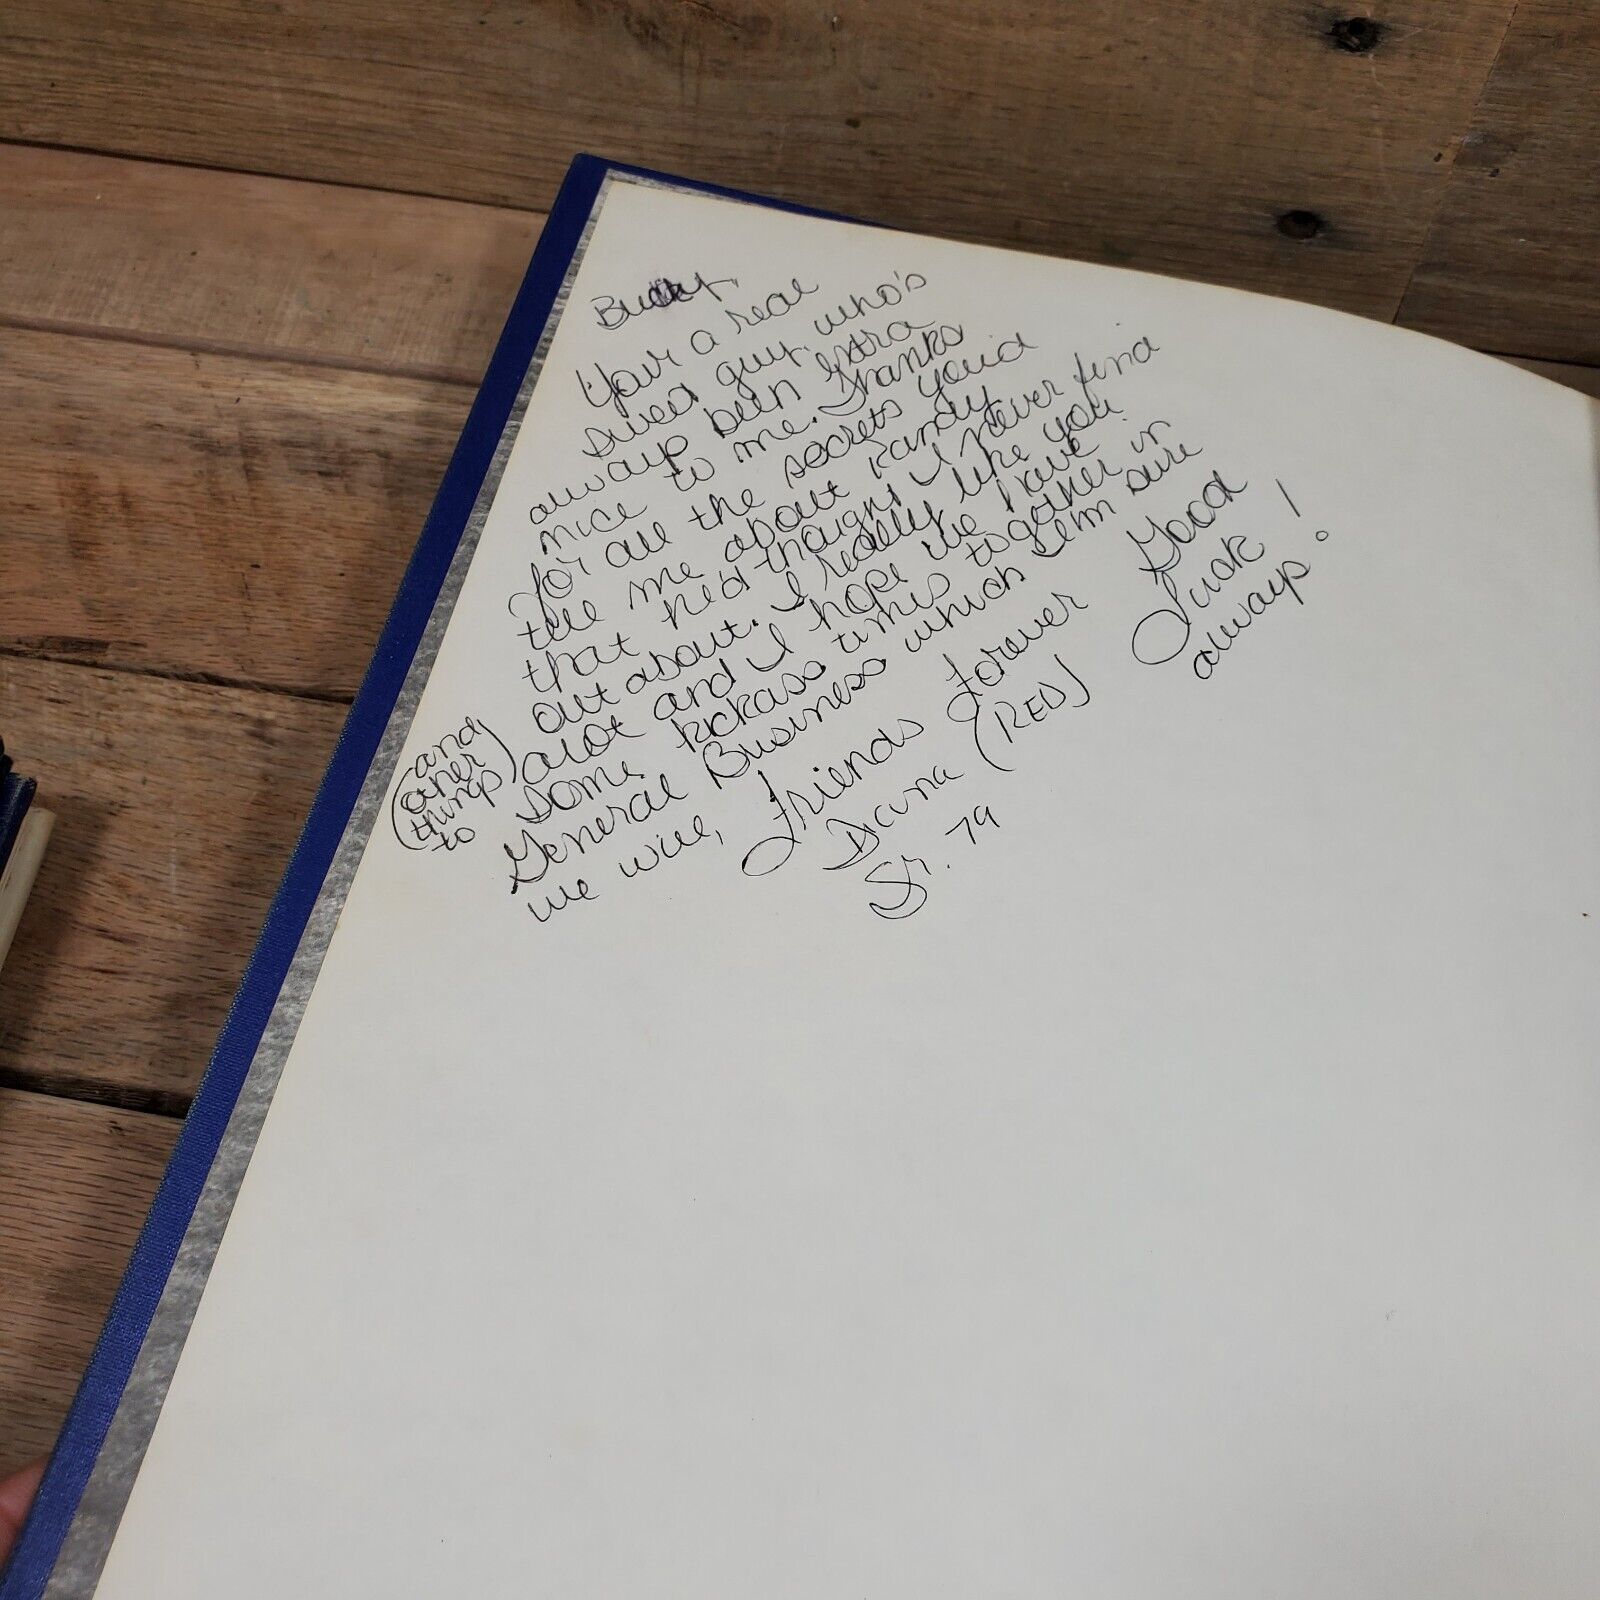 Your a real
sweet guy, who's
always been extra
nice to me. Thanks
for all the secrets you'd
tell me about Randy
that he'd thought I never find
out about. I really like you
alot and I hope we have
(and
other
things
to)
some kickass times together in
General Business which I'm sure
we will,
Friends Forever
Diana (RED)
Sr. 79
Good
Luck
always!